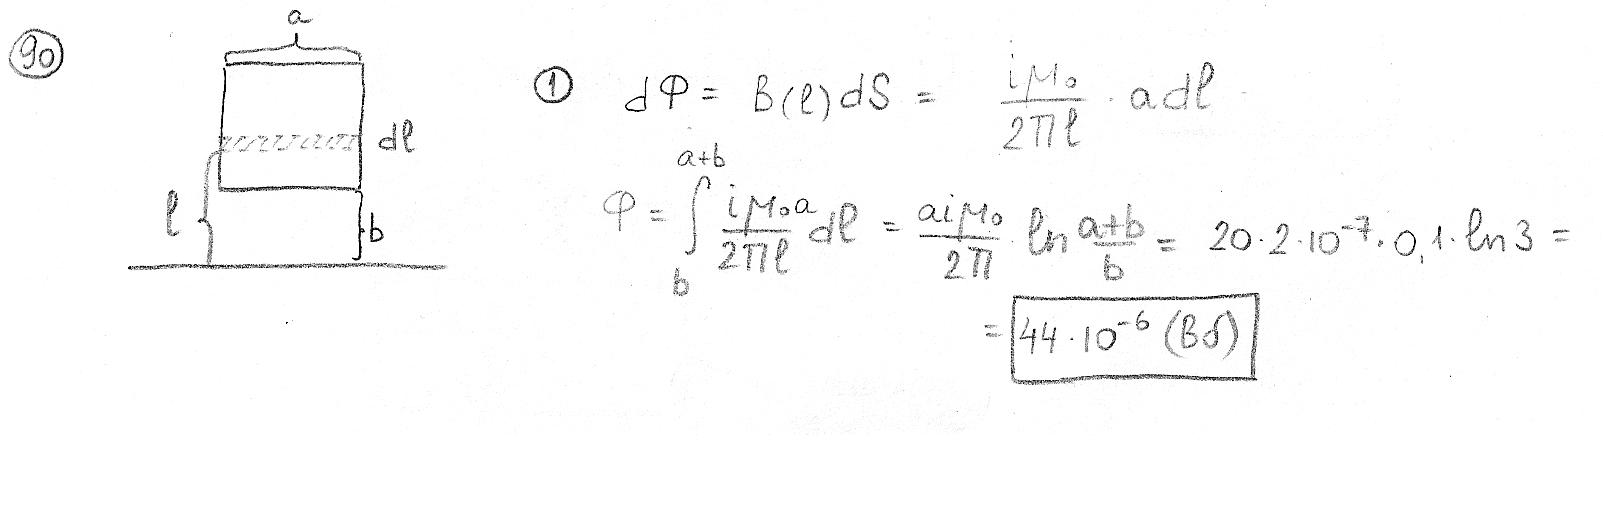 90
a
dl
l
b
① dФ = B(l) dS = iμ₀/2πl · a dl
Ф = ∫_b^{a+b} iμ₀a/2πl dl = aiμ₀/2π · ln a+b/b = 20·2·10⁻⁷·0,1·ln3 =
= 44·10⁻⁶ (Вб)